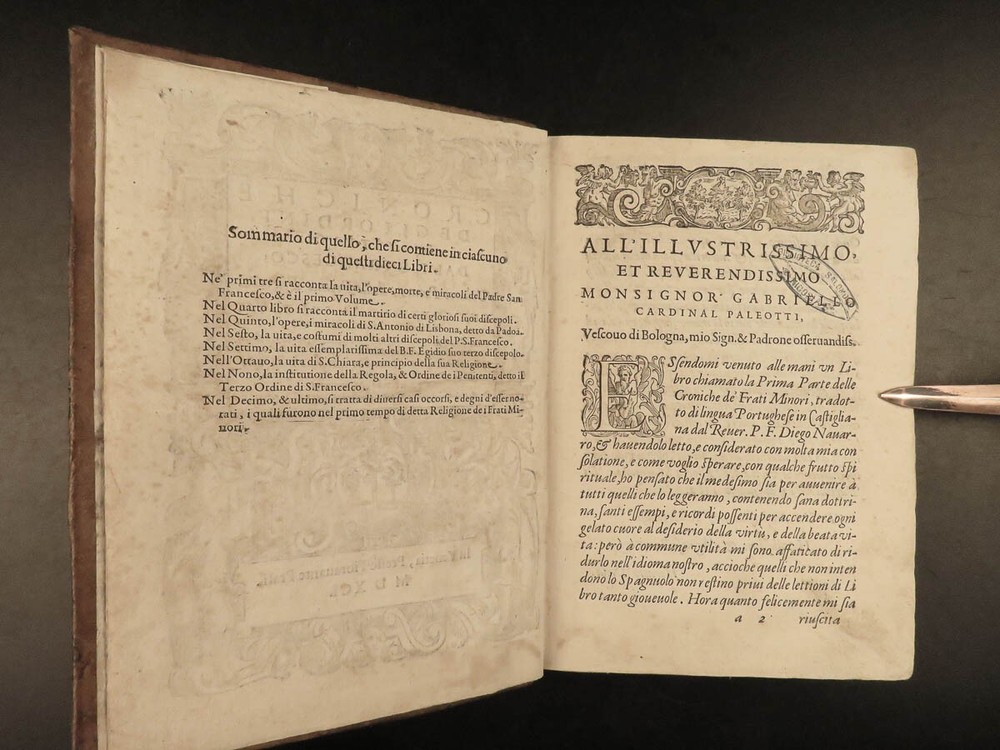 Sommario di quello, che si contiene in ciascuno
di questi dieci Libri.
Ne' primi tre si racconta la uita, l'opere, morte, e miracoli del Padre San
Francesco, & è il primo Volume.
Nel Quarto libro si racconta il martirio di certi gloriosi suoi discepoli.
Nel Quinto, l'opere, i miracoli di S. Antonio di Lisbona, detto da Padoa.
Nel Sesto, la uita, e costumi di molti altri discepoli del P. S. Francesco.
Nel Settimo, la uita essemplarissima del B. F. Egidio suo terzo discepolo.
Nell'Ottauo, la uita di S. Chiara, e principio della sua Religione.
Nel Nono, la institutione della Regola, & Ordine de i Penitenti, detto il
Terzo Ordine di S. Francesco.
Nel Decimo, & ultimo, si tratta di diuersi casi occorsi, e degni d'esser no-
tati, i quali furono nel primo tempo di detta Religione de i Frati Mi-
nori.
ALL'ILLVSTRISSIMO,
ET REVERENDISSIMO
MONSIGNOR GABRIELLO
CARDINAL PALEOTTI,
Vescouo di Bologna, mio Sign. & Padrone osseruandiss.
ESsendomi venuto alle mani vn Li-
bro chiamato la Prima Parte delle
Croniche de' Frati Minori, tradot-
to di lingua Portughese in Castiglia-
na dal Reuer. P. F. Diego Nauar-
ro, & hauendolo letto, e considerato con molta mia con
solatione, e come voglio sperare, con qualche frutto spi
rituale, ho pensato che il medesimo sia per auuenire à
tutti quelli che lo leggeranno, contenendo sana dottri-
na, santi essempi, e ricordi possenti per accendere ogni
gelato cuore al desiderio della virtù, e della beata vi-
ta: però à commune vtilità mi sono affaticato di ri-
durlo nell'idioma nostro, accioche quelli che non inten
dono lo Spagnuolo non restino priui delle lettioni di Li
bro tanto gioueuole. Hora quanto felicemente mi sia
a 2 riuscita